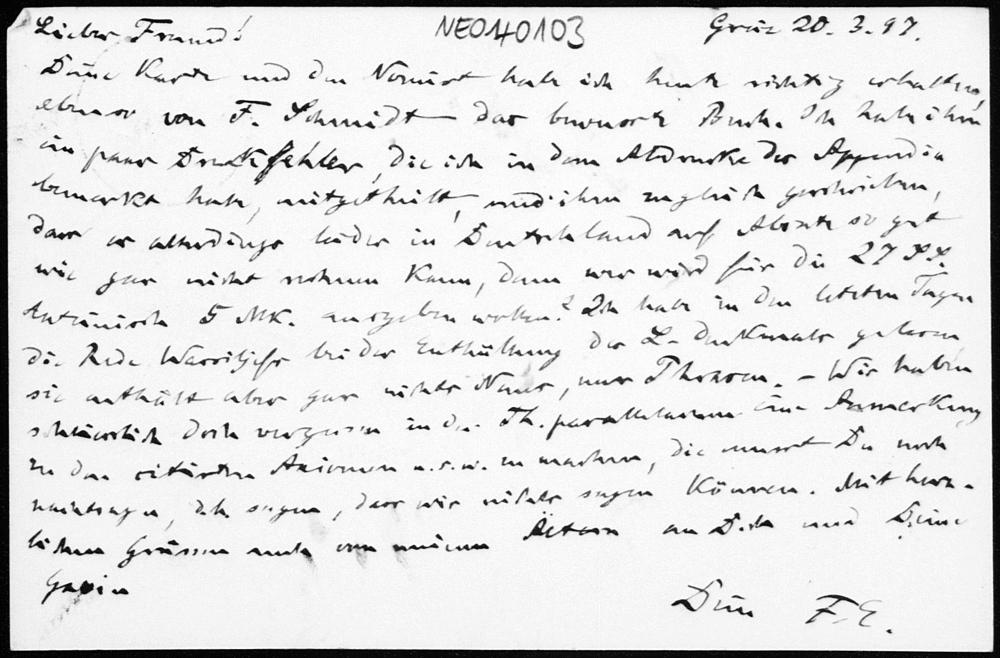 Lieber Freund! NE040103 Graz 20. 3. 97.
Deine Karte und den Vorurst habe ich heute richtig erhalten,
ebenso von F. Schmidt das bewusste Buch. Ich habe ihm
ein paar Druckfehler, die ich in dem Abdrucke des Appendix
bemerkt habe, mitgetheilt, und ihm zugleich geschrieben,
dass er allerdings leider in Deutschland auf Absatz so gut
wie gar nicht rechnen kann, denn wer wird für die 27 SS.
Lateinisch 5 Mk. ausgeben wollen? Ich habe in den letzten Tagen
die Rede Wassiljefs bei der Enthüllung des L-Denkmals gelesen,
sie enthält aber gar nichts Neues, nur Phrasen. – Wir haben
schliesslich doch vergessen in der Th. parallelarum eine Anmerkung
zu den citirten Axiomen u.s.w. zu machen, die musst Du noch
nachtragen, d.h. sagen, dass wir nichts sagen können. Mit herz-
lichen Grüssen auch von meinen Ältern an Dich und Deine
Gavin
Dein F.E.